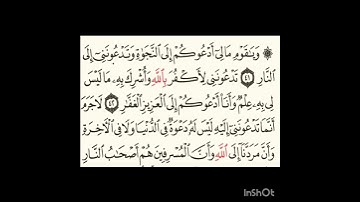 ۞ وَيَٰقَوْمِ مَالِيٓ أَدْعُوكُمْ إِلَى ٱلنَّجَوٰةِ وَتَدْعُونَنِيٓ إِلَى
ٱلنَّارِ ٤١ تَدْعُونَنِي لِأَكْفُرَ بِٱللَّهِ وَأُشْرِكَ بِهِۦ مَا لَيْسَ
لِي بِهِۦ عِلْمٌ وَأَنَا۠ أَدْعُوكُمْ إِلَى ٱلْعَزِيزِ ٱلْغَفَّٰرِ ٤٢ لَا جَرَمَ
أَنَّمَا تَدْعُونَنِيٓ إِلَيْهِ لَيْسَ لَهُۥ دَعْوَةٌ فِي ٱلدُّنْيَا وَلَا فِي ٱلْأٓخِرَةِ
وَأَنَّ مَرَدَّنَآ إِلَى ٱللَّهِ وَأَنَّ ٱلْمُسْرِفِينَ هُمْ أَصْحَٰبُ ٱلنَّارِ
InShOt